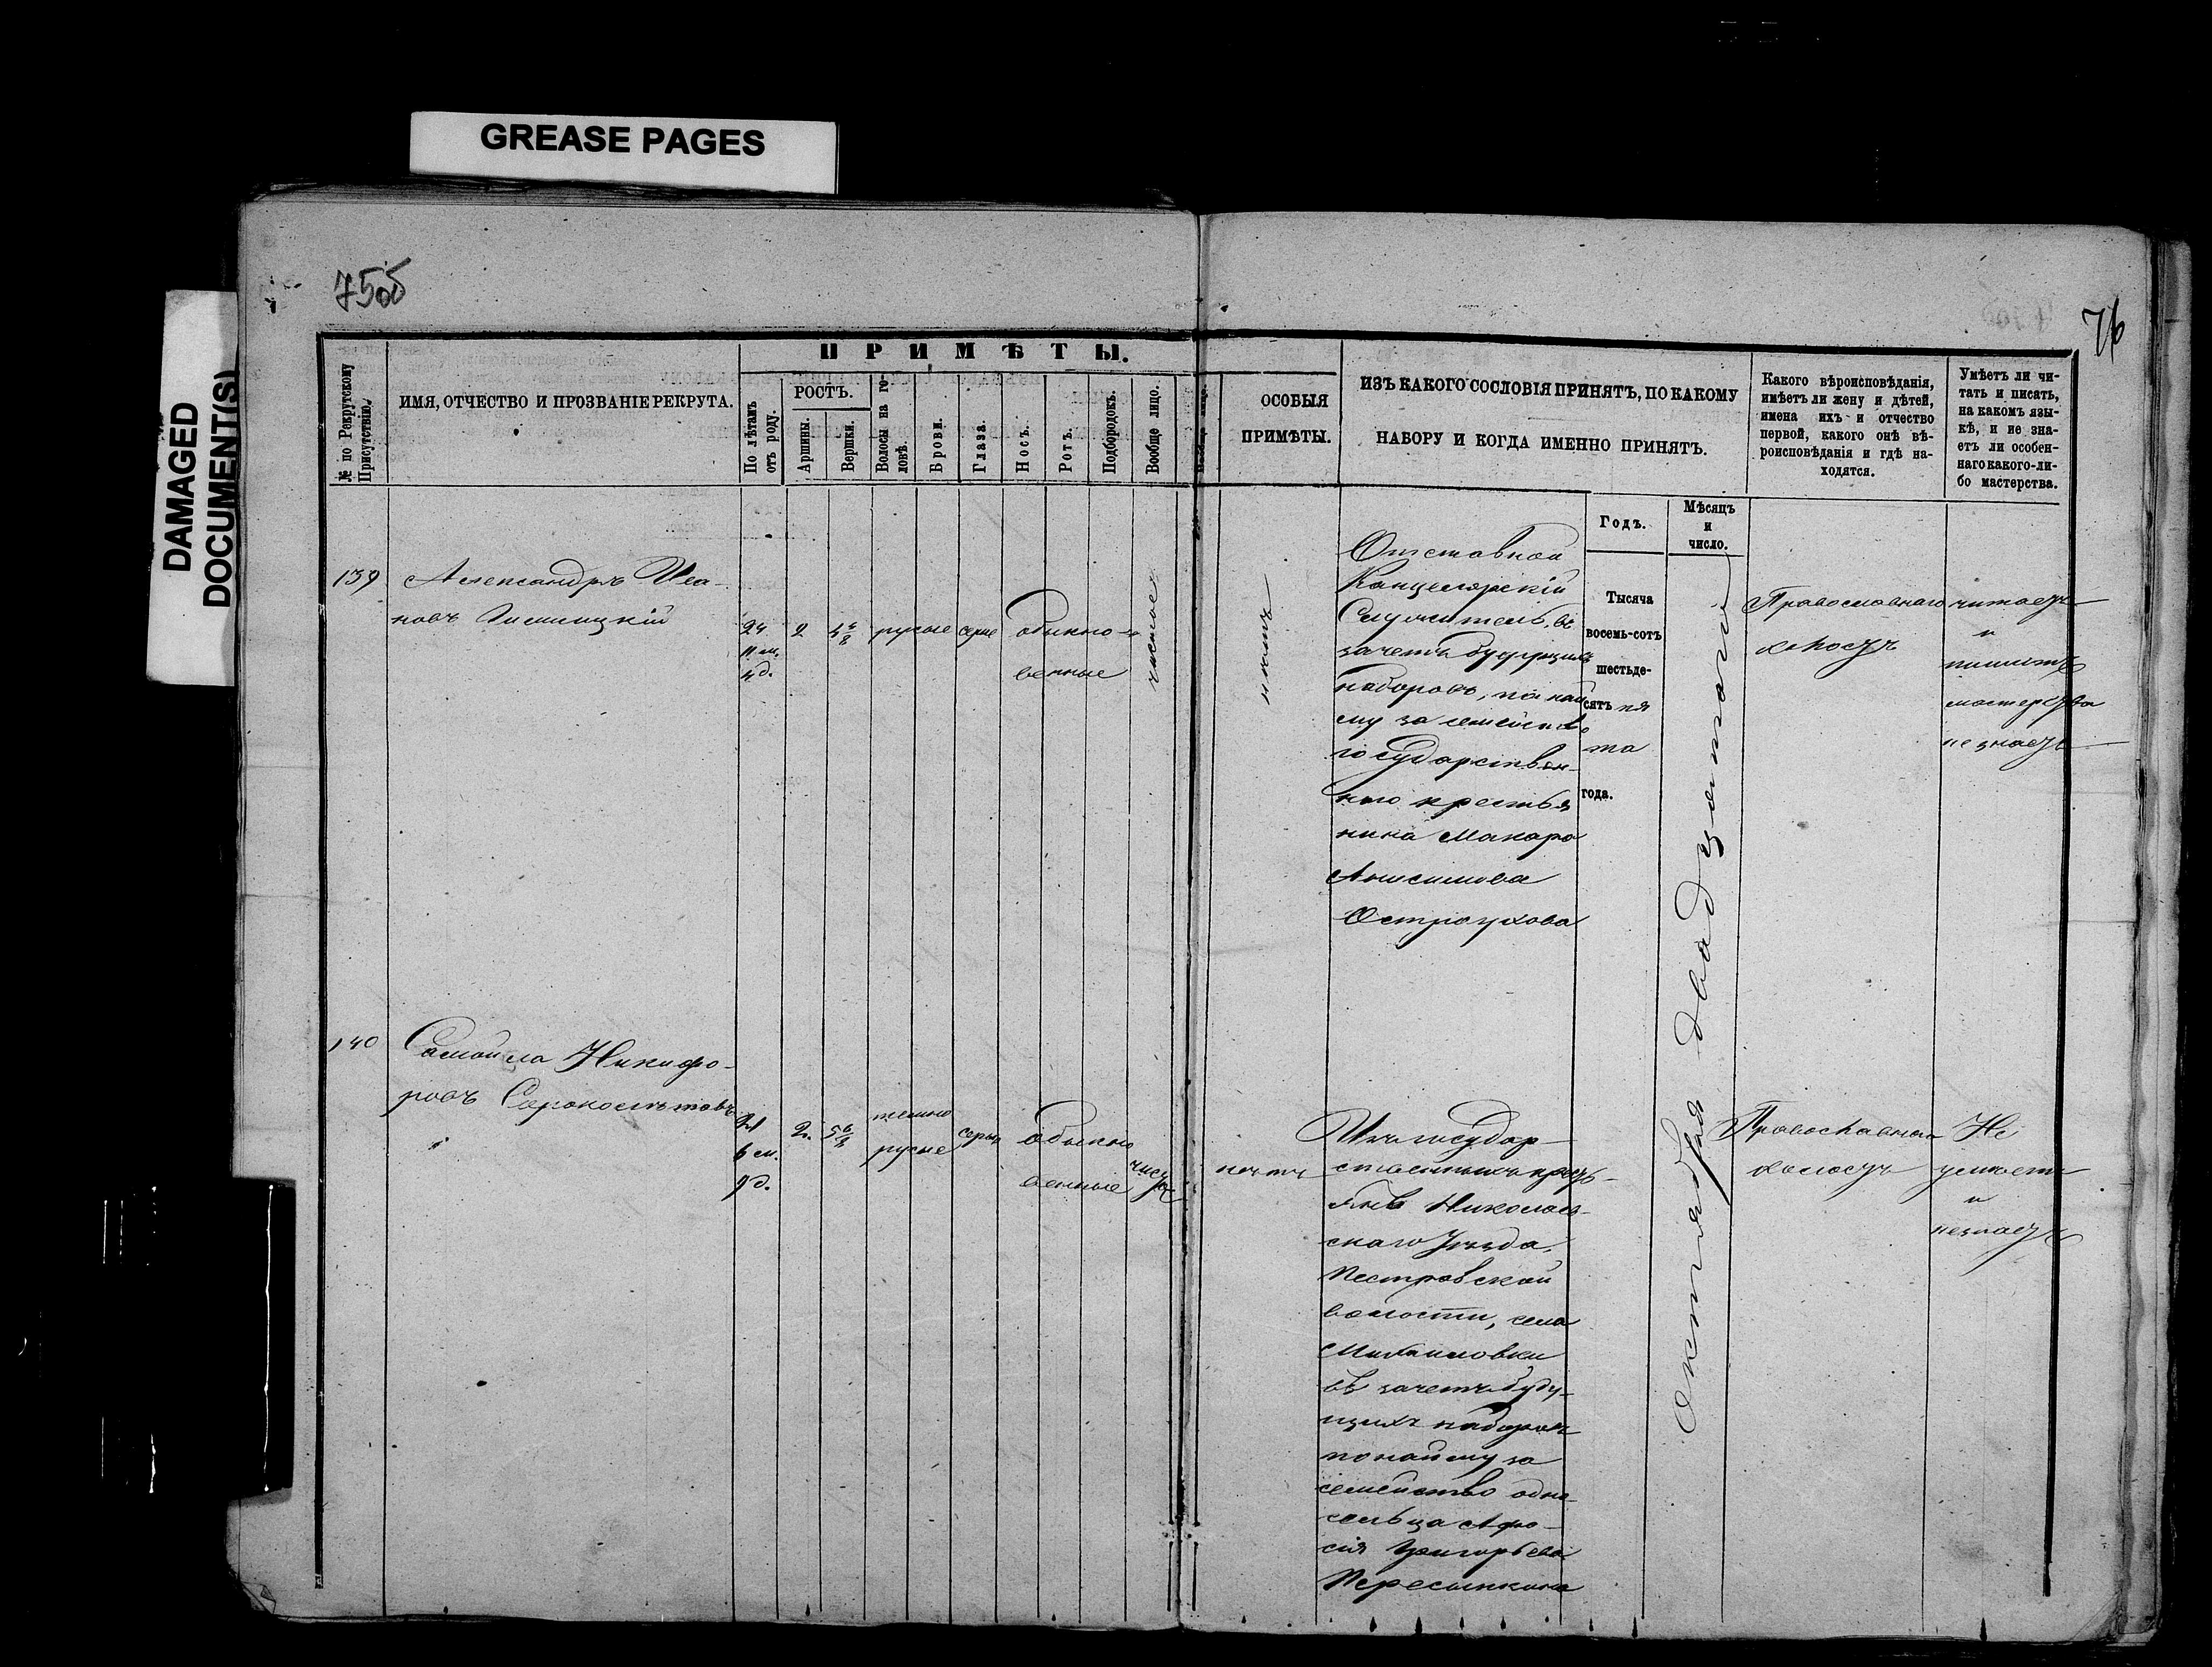 GREASE PAGES
DAMAGED
DOCUMENT(S)
75об
76
№ по Рекрутскому Присутствію.
ИМЯ, ОТЧЕСТВО И ПРОЗВАНІЕ РЕКРУТА.
ПРИМѢТЫ.
По лѣтамъ отъ роду.
РОСТЪ.
Аршины.
Вершки.
Волосы на головѣ.
Брови.
Глаза.
Носъ.
Ротъ.
Подбородокъ.
Вообще лицо.
ОСОБЫЯ
ПРИМѢТЫ.
ИЗЪ КАКОГО СОСЛОВІЯ ПРИНЯТЪ, ПО КАКОМУ
НАБОРУ И КОГДА ИМЕННО ПРИНЯТЪ.
Годъ.
Мѣсяцъ
и
число.
Какого вѣроисповѣданія,
имѣетъ ли жену и дѣтей,
имена ихъ и отчество
первой, какого онѣ вѣ-
роисповѣданія и гдѣ на-
ходятся.
Умѣетъ ли чи-
тать и писать,
на какомъ язы-
кѣ, и не зна-
етъ ли особен-
наго какого-ли-
бо мастерства.
139
Александръ Ива-
новъ
24
11 м.
4 д.
2
русые
серые
обыкно-
венные
чистое
нѣтъ
Отставной
Канцелярскій
Служитель, въ
зачетъ будущихъ
наборовъ, по най
му за семейство
государствен-
наго крестья
нина Макара
Анисимова
Остроухова
Тысяча
восемь-сотъ
шестьде-
сятъ пя
та
года.
Октября двадцатаго
Православнаго
холостъ
читаетъ
и
пишетъ
мастерства
незнаетъ
140
Самойла Никифо-
ровъ
21
6 м.
9 д.
2.
темно
русые
серые
обыкно
венные
чистое
нѣтъ
Изъ государ-
ственныхъ кресть-
янъ Николаев-
скаго Уѣзда,
Пестровской
волости, села
Михайловки
въ зачетъ буду-
щихъ наборовъ
по найму за
семейство одно-
сельца Афо-
сія Григорьева
Пересыпкина
Православнаго
холостъ
Не
умѣетъ
и
незнаетъ